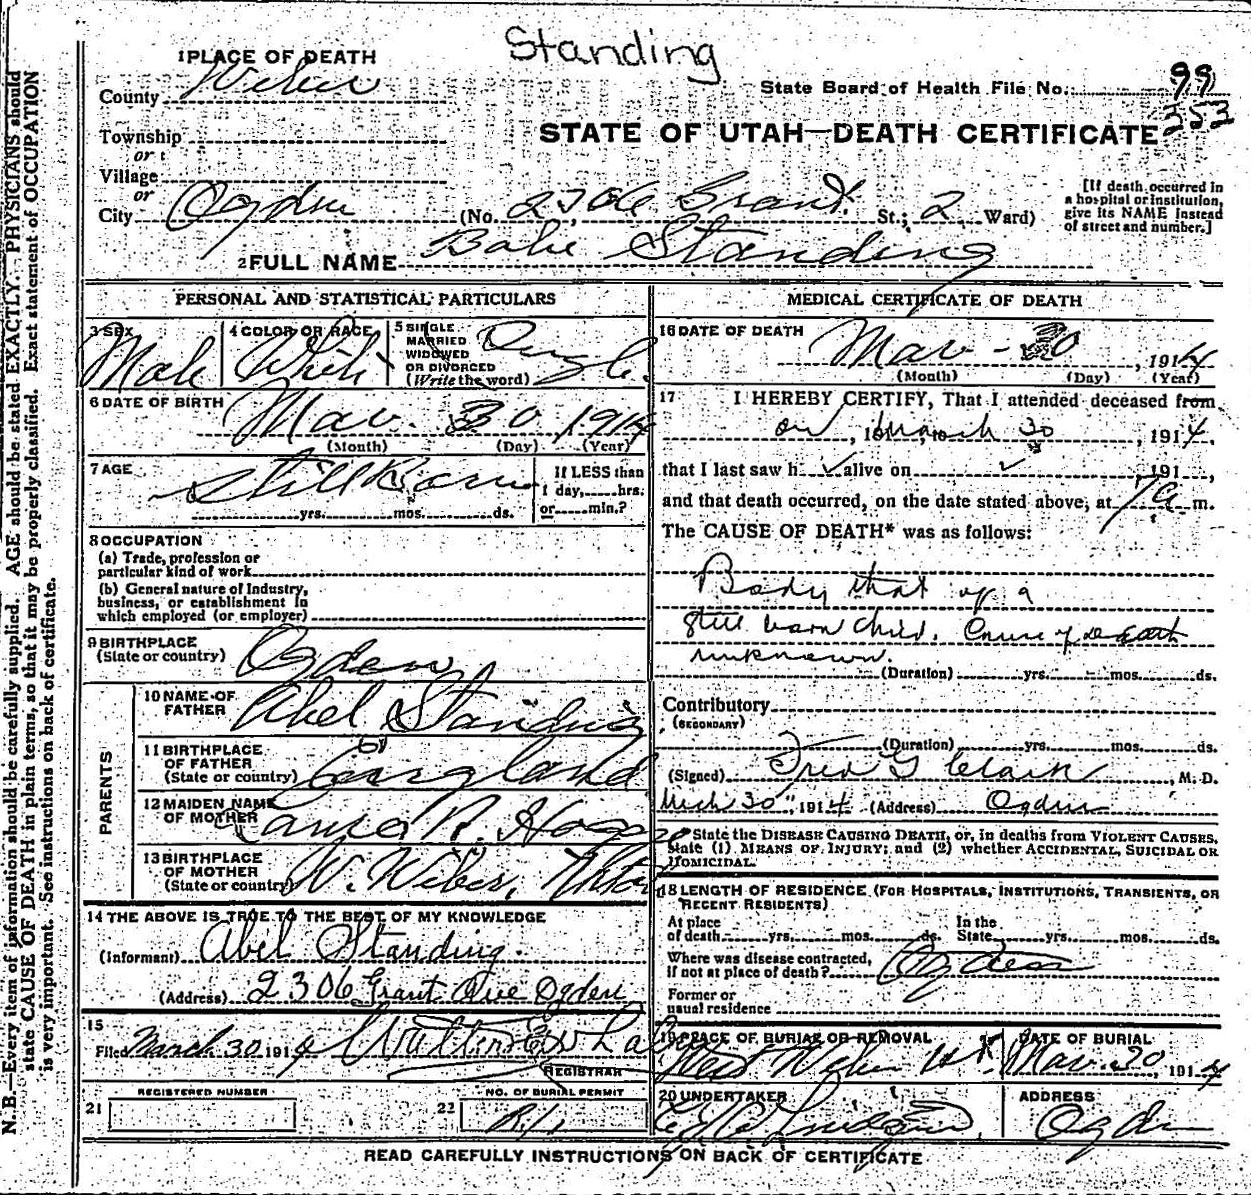 Standing
1 PLACE OF DEATH
County Weber
State Board of Health File No. 99
353
STATE OF UTAH—DEATH CERTIFICATE
Township
or
Village
or
City Ogden (No. 2306 Grant St.; 2 Ward)
[If death occurred in
a hospital or institution,
give its NAME instead
of street and number.]
2 FULL NAME Babe Standing
PERSONAL AND STATISTICAL PARTICULARS
3 SEX Male
4 COLOR OR RACE White
5 SINGLE
MARRIED
WIDOWED
OR DIVORCED
(Write the word) Single
6 DATE OF BIRTH Mar. 30 1914
(Month) (Day) (Year)
7 AGE Still Born
yrs. mos. ds.
If LESS than
1 day, hrs.
or min.?
8 OCCUPATION
(a) Trade, profession or
particular kind of work
(b) General nature of Industry,
business, or establishment in
which employed (or employer)
9 BIRTHPLACE
(State or country) Ogden
PARENTS
10 NAME OF
FATHER Abel Standing
11 BIRTHPLACE
OF FATHER
(State or country) England
12 MAIDEN NAME
OF MOTHER R.
13 BIRTHPLACE
OF MOTHER
(State or country) W. Weber, Utah
14 THE ABOVE IS TRUE TO THE BEST OF MY KNOWLEDGE
(Informant) Abel Standing.
(Address) 2306 Grant Ave Ogden
15
Filed March 30 1914
REGISTRAR
REGISTERED NUMBER
21
NO. OF BURIAL PERMIT
22
MEDICAL CERTIFICATE OF DEATH
16 DATE OF DEATH Mar - 30, 1914
(Month) (Day) (Year)
17 I HEREBY CERTIFY, That I attended deceased from
on, 191 March 30, 1914,
that I last saw h ✓ alive on ✓, 191
and that death occurred, on the date stated above, at 7 a m.
The CAUSE OF DEATH* was as follows:
Body that of a
still born child. Cause of death
unknown.
(Duration) yrs. mos. ds.
Contributory
(SECONDARY)
(Duration) yrs. mos. ds.
(Signed) Fred G Clark, M. D.
Mch 30", 1914 (Address) Ogden
*State the DISEASE CAUSING DEATH, or, in deaths from VIOLENT CAUSES,
state (1) MEANS OF INJURY; and (2) whether ACCIDENTAL, SUICIDAL OR
HOMICIDAL.
18 LENGTH OF RESIDENCE (FOR HOSPITALS, INSTITUTIONS, TRANSIENTS, OR
RECENT RESIDENTS)
At place
of death yrs. mos. ds.
In the
State yrs. mos. ds.
Where was disease contracted,
if not at place of death? Ogden
Former or
usual residence
19 PLACE OF BURIAL OR REMOVAL
West Weber
DATE OF BURIAL
Mar. 30, 1914
20 UNDERTAKER
ADDRESS
Ogden
READ CAREFULLY INSTRUCTIONS ON BACK OF CERTIFICATE
N. B.—Every item of information should be carefully supplied. AGE should be stated EXACTLY. PHYSICIANS should
state CAUSE OF DEATH in plain terms, so that it may be properly classified. Exact statement of OCCUPATION
is very important. See instructions on back of certificate.